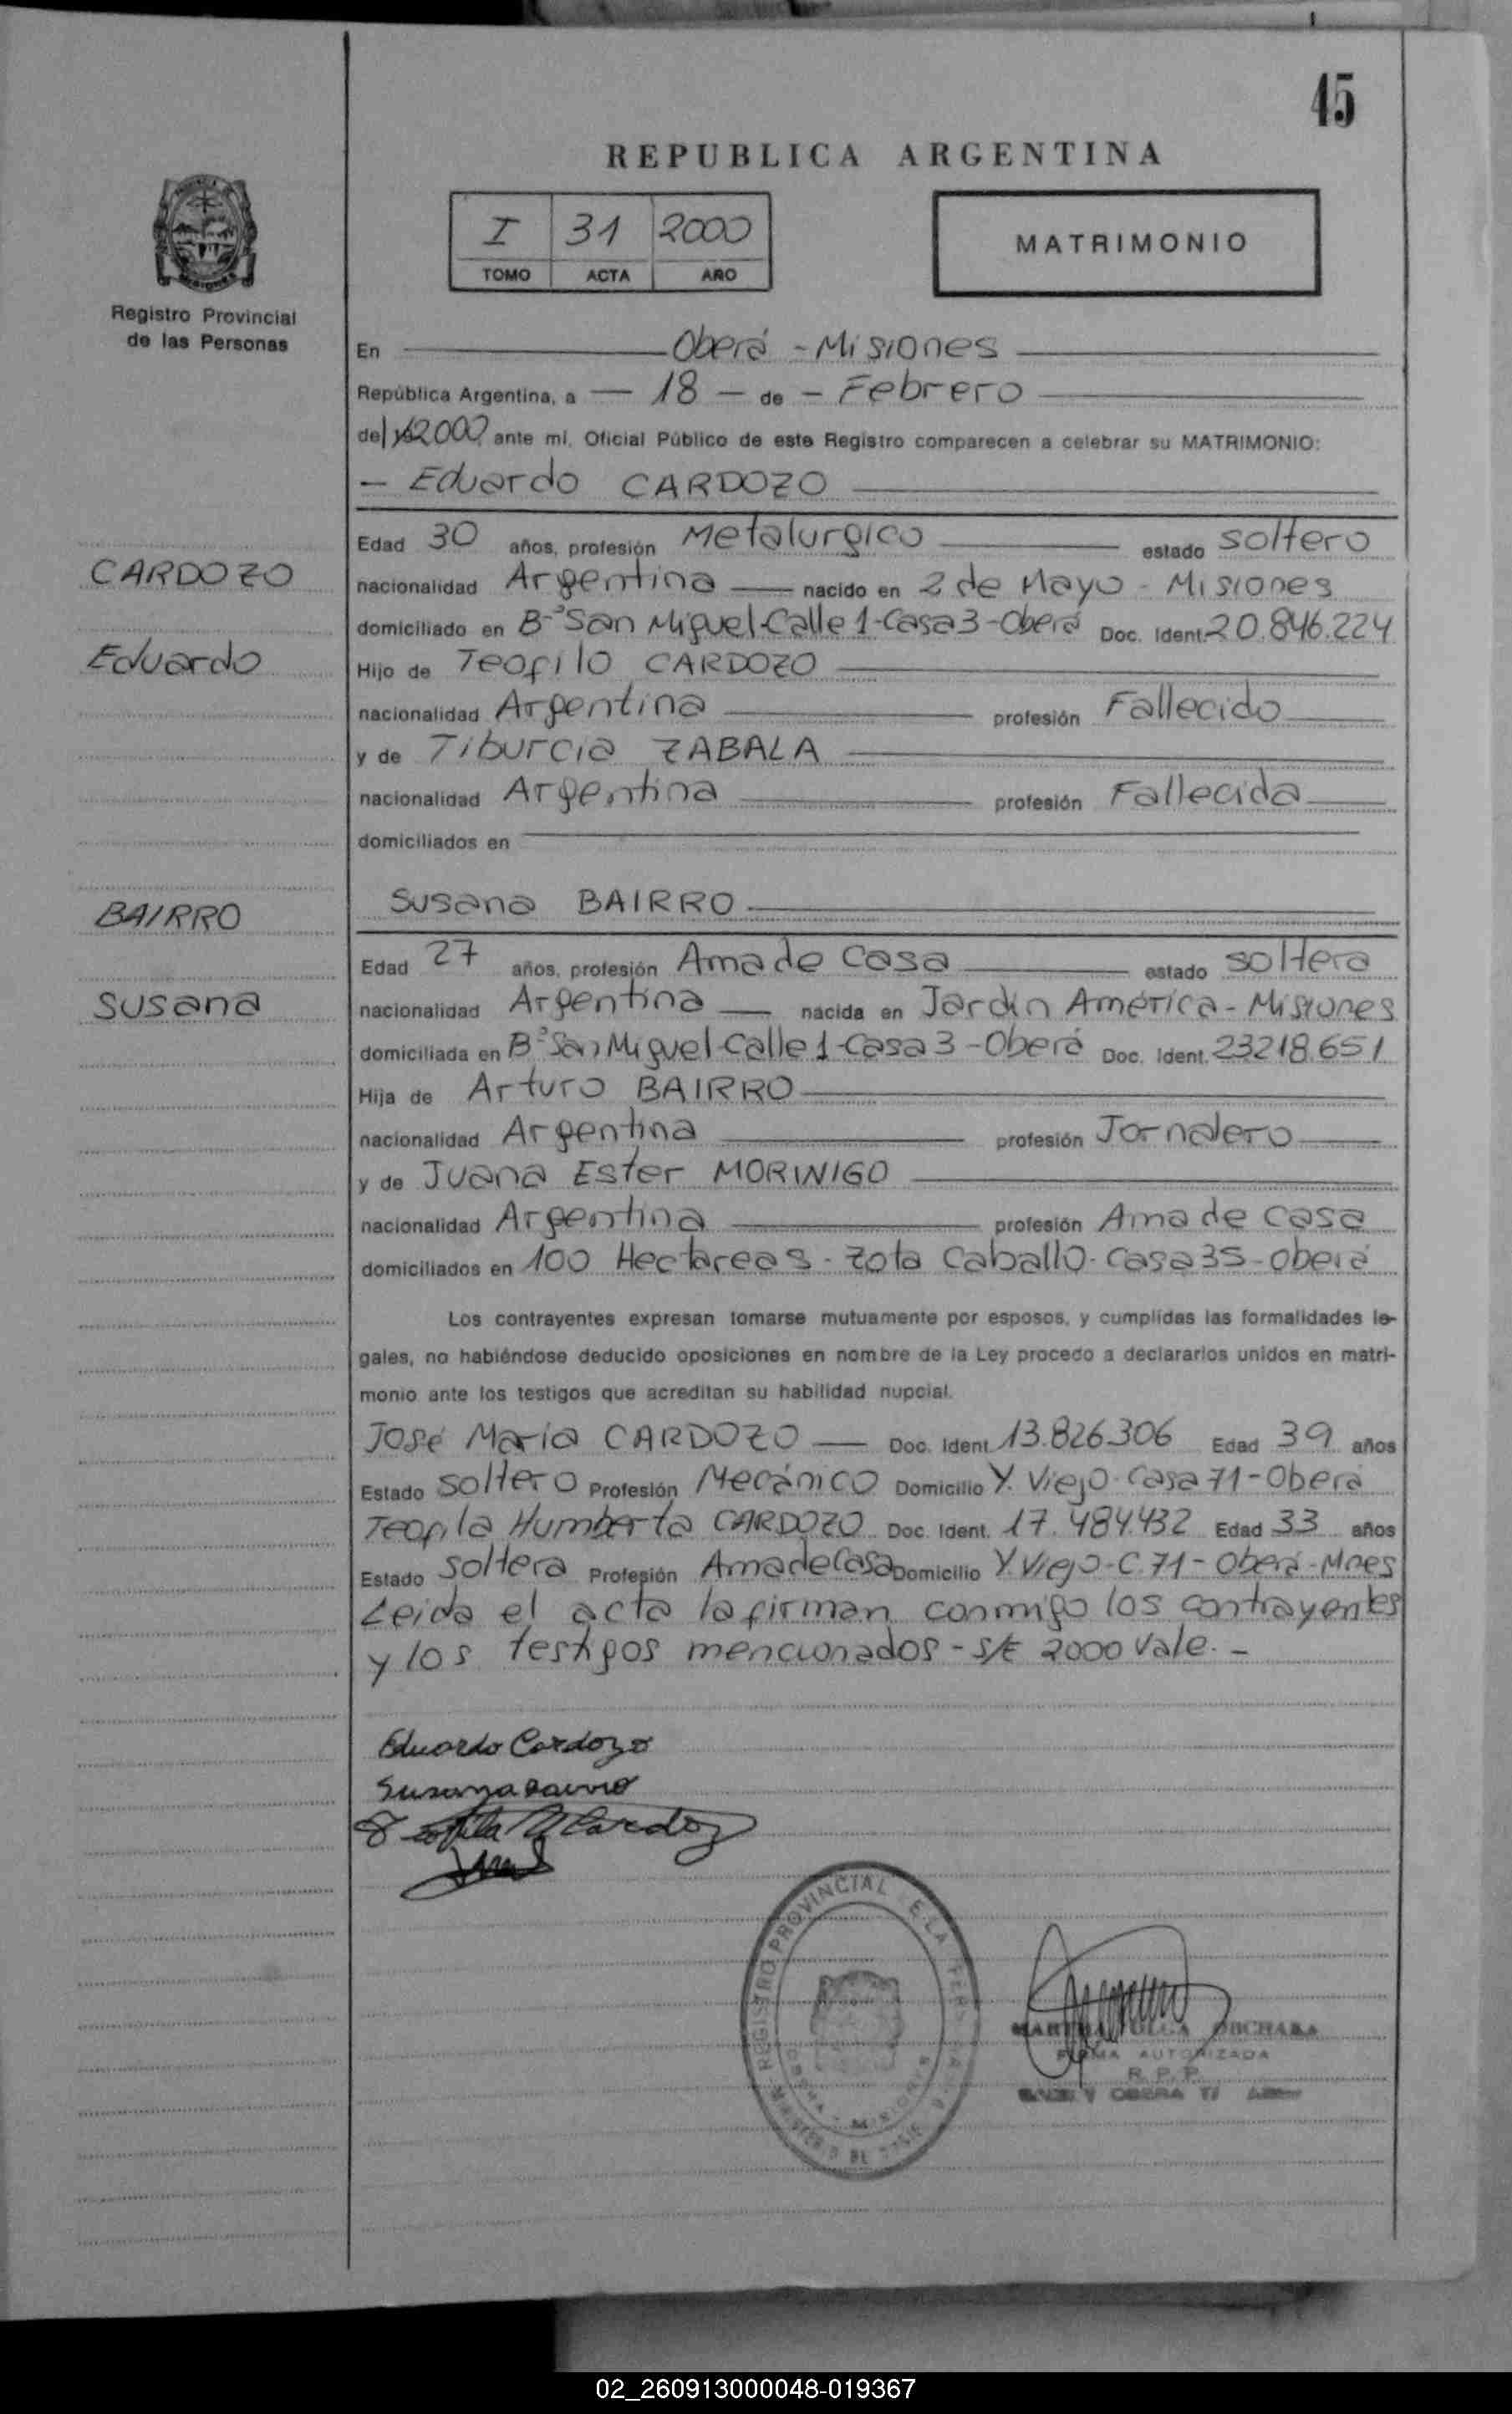 45
REPUBLICA ARGENTINA
I 31 2000
TOMO ACTA AÑO
MATRIMONIO
Registro Provincial
de las Personas
En Oberá - Misiones
República Argentina, a - 18 - de - Febrero
del 2000, ante mí, Oficial Público de este Registro comparecen a celebrar su MATRIMONIO:
- Eduardo CARDOZO
CARDOZO
Eduardo
Edad 30 años, profesión Metalurgico estado soltero
nacionalidad Argentina nacido en 2 de Mayo - Misiones
domiciliado en B-º San Miguel-Calle 1-Casa 3-Oberá Doc. Ident. 20.846.224
Hijo de Teofilo CARDOZO
nacionalidad Argentina profesión Fallecido
y de Tiburcia ZABALA
nacionalidad Argentina profesión Fallecida
domiciliados en
Susana BAIRRO
BAIRRO
Susana
Edad 27 años, profesión Ama de Casa estado soltera
nacionalidad Argentina nacida en Jardin América - Misiones
domiciliada en Bº San Miguel-Calle 1-Casa 3-Oberá Doc. Ident. 23218.651
Hija de Arturo BAIRRO
nacionalidad Argentina profesión Jornalero
y de Juana Ester MORINIGO
nacionalidad Argentina profesión Ama de casa
domiciliados en 100 Hectareas - Zota Caballo - Casa 35 - Oberá
Los contrayentes expresan tomarse mutuamente por esposos, y cumplidas las formalidades le-
gales, no habiéndose deducido oposiciones en nombre de la Ley procedo a declararlos unidos en matri-
monio ante los testigos que acreditan su habilidad nupcial.
José María CARDOZO Doc. Ident. 13.826.306 Edad 39 años
Estado soltero Profesión Mecánico Domicilio Y. Viejo-Casa 71-Oberá
Teofila Humberta CARDOZO Doc. Ident. 17.484.432 Edad 33 años
Estado soltera Profesión Ama de Casa Domicilio Y. Viejo-C.71-Oberá-Mnes
Leida el acta la firman conmigo los contrayentes
y los testigos mencionados - S/E 2000 Vale. -
Eduardo Cardozo
Susana Bairro
Teofila H Cardozo
REGISTRO PROVINCIAL DE LA
MINISTERIO DE
MARTHA OLGA
FIRMA AUTORIZADA
R. P. P.
OBERA
02_260913000048-019367